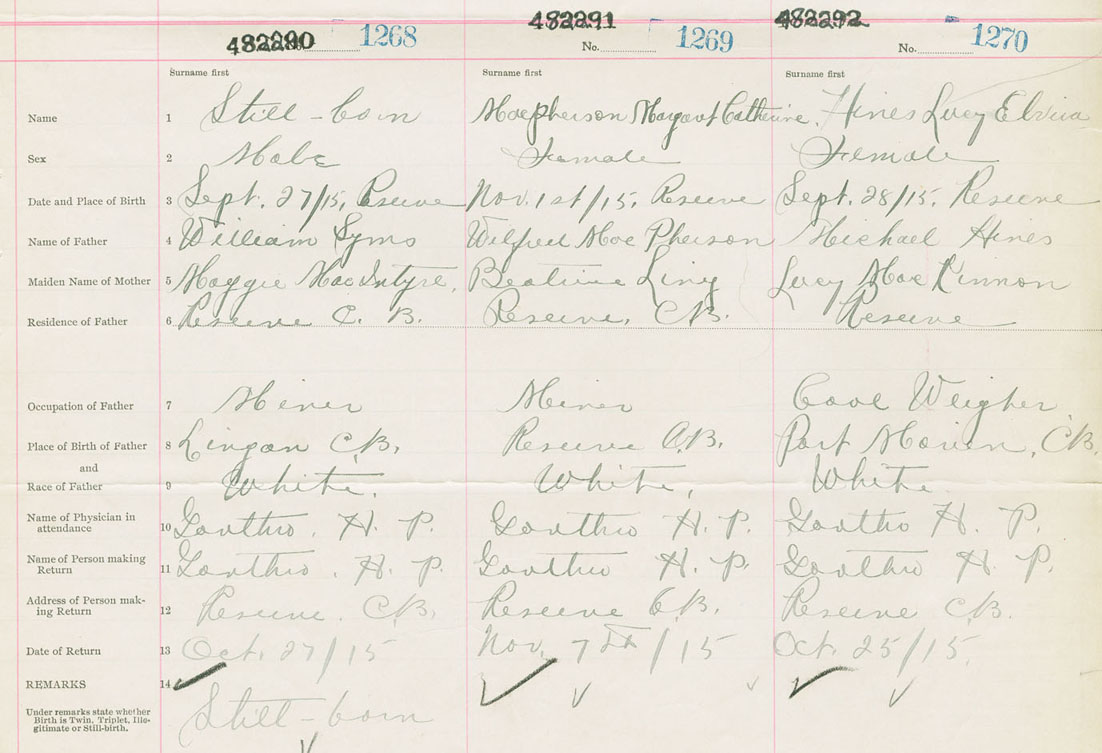 482290 1268 482291 No. 1269 482292 No. 1270
Surname first Surname first Surname first
Name 1 Still-born Macpherson Margaret Catherine. Hines Lucy Elvira
Sex 2 Male Female Female
Date and Place of Birth 3 Sept. 27/15, Reserve Nov. 1st/15, Reserve Sept. 28/15. Reserve
Name of Father 4 William Syms Wilfred MacPherson Michael Hines
Maiden Name of Mother 5 Maggie MacIntyre, Beatrice Lucy MacKinnon
Residence of Father 6 Reserve C. B. Reserve, C.B. Reserve
Occupation of Father 7 Miner Miner Coal Weigher
Place of Birth of Father 8 Lingan C.B. Reserve C.B. Port Morien, C.B.
and
Race of Father 9 White. White, White.
Name of Physician in
attendance 10 H. P. H. P. H. P.
Name of Person making
Return 11 H. P. H. P. H. P.
Address of Person mak-
ing Return 12 Reserve C.B. Reserve C.B. Reserve C.B.
Date of Return 13 Oct. 27/15 Nov. 7th/15 Oct. 25/15.
REMARKS 14
Under remarks state whether
Birth is Twin, Triplet, Ille-
gitimate or Still-birth.
Still-born